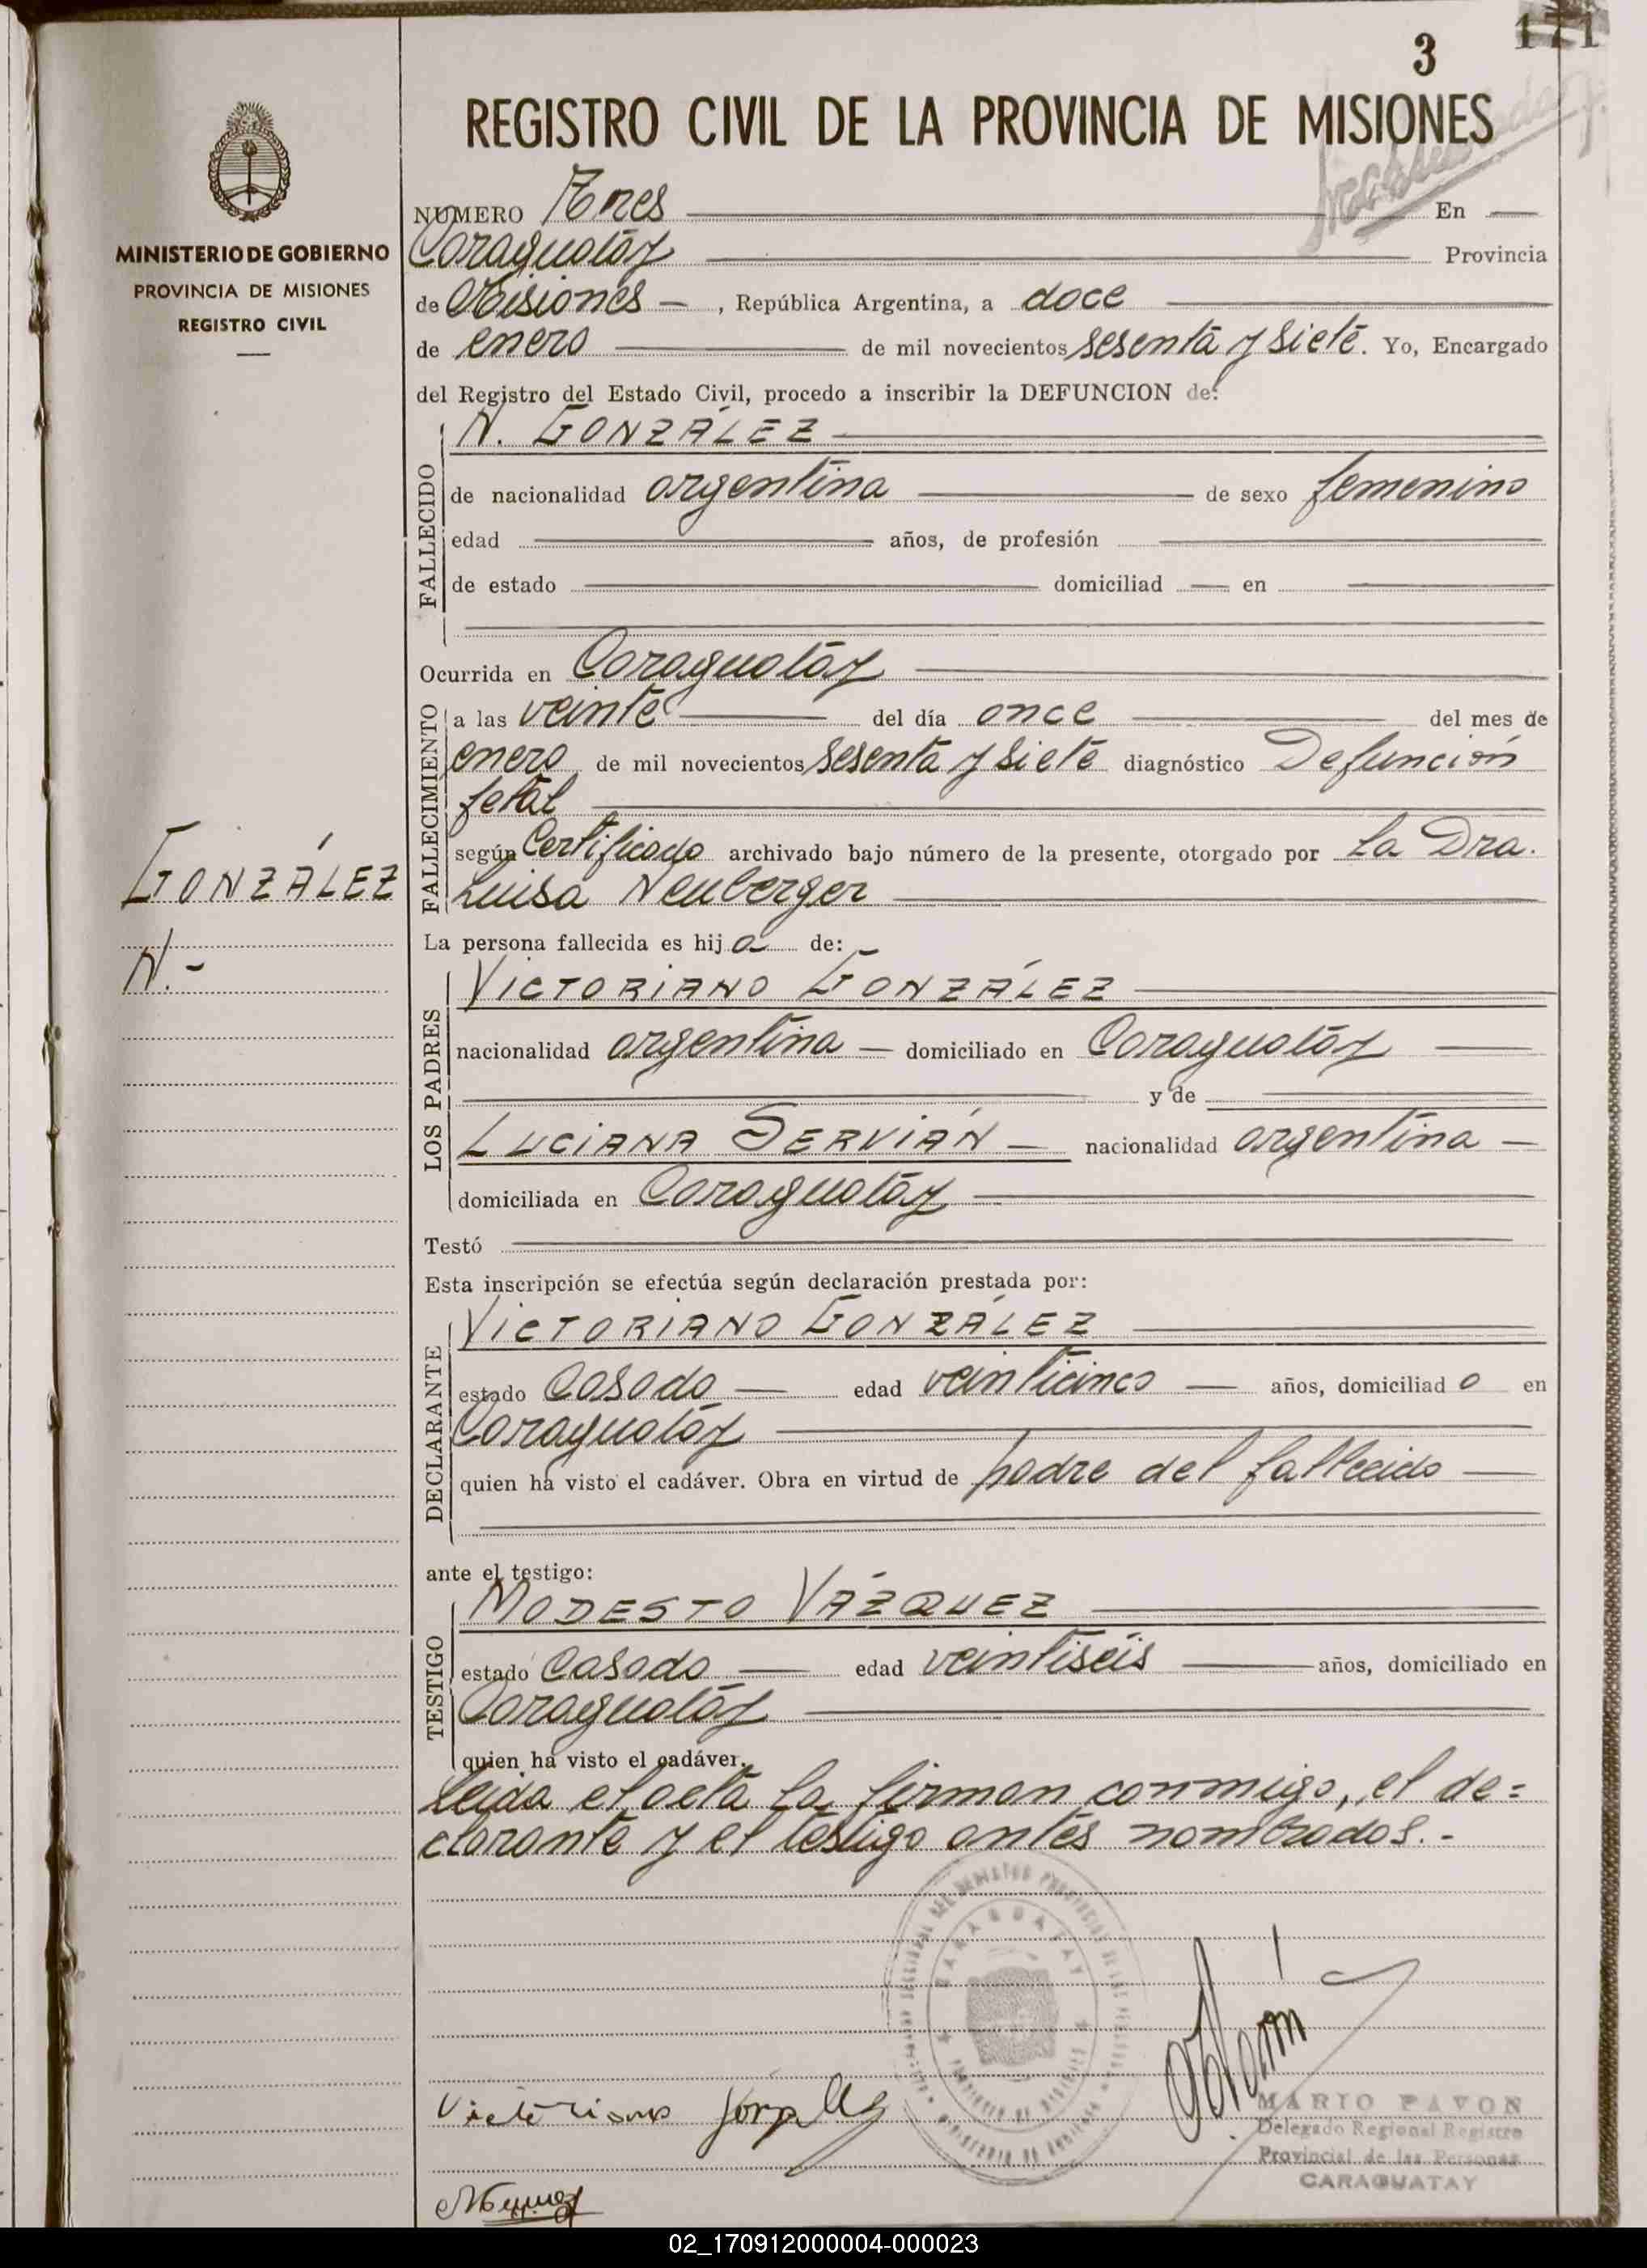 3
171
REGISTRO CIVIL DE LA PROVINCIA DE MISIONES
MINISTERIO DE GOBIERNO
PROVINCIA DE MISIONES
REGISTRO CIVIL
NUMERO Tres En
Caraguatáy Provincia
de Misiones - , República Argentina, a doce
de enero de mil novecientos sesenta y siete. Yo, Encargado
del Registro del Estado Civil, procedo a inscribir la DEFUNCION de:
FALLECIDO
N. GONZÁLEZ
de nacionalidad argentina de sexo femenino
edad años, de profesión
de estado domiciliad en
Ocurrida en Caraguatáy
FALLECIMIENTO
a las veinte del día once del mes de
enero de mil novecientos sesenta y siete diagnóstico Defunción
fetal
según Certificado archivado bajo número de la presente, otorgado por la Dra.
Luisa Neuberger
GONZÁLEZ
N.-
La persona fallecida es hija de:
LOS PADRES
VICTORIANO GONZÁLEZ
nacionalidad argentina - domiciliado en Caraguatáy
y de
LUCIANA SERVIÁN - nacionalidad argentina -
domiciliada en Caraguatáy
Testó
Esta inscripción se efectúa según declaración prestada por:
DECLARANTE
VICTORIANO GONZÁLEZ
estado casado - edad veinticinco - años, domiciliado en
Caraguatáy
quien ha visto el cadáver. Obra en virtud de padre del fallecido
ante el testigo:
TESTIGO
MODESTO VÁZQUEZ
estado casado - edad veintiséis años, domiciliado en
Caraguatáy
quien ha visto el cadáver.
Leída el acta la firman conmigo, el de=
clarante y el testigo antes nombrados.-
CARAGUATAY
PROVINCIA DE MISIONES
MARIO PAVON
Delegado Regional Registro
Provincial de las Personas
CARAGUATAY
02_170912000004-000023